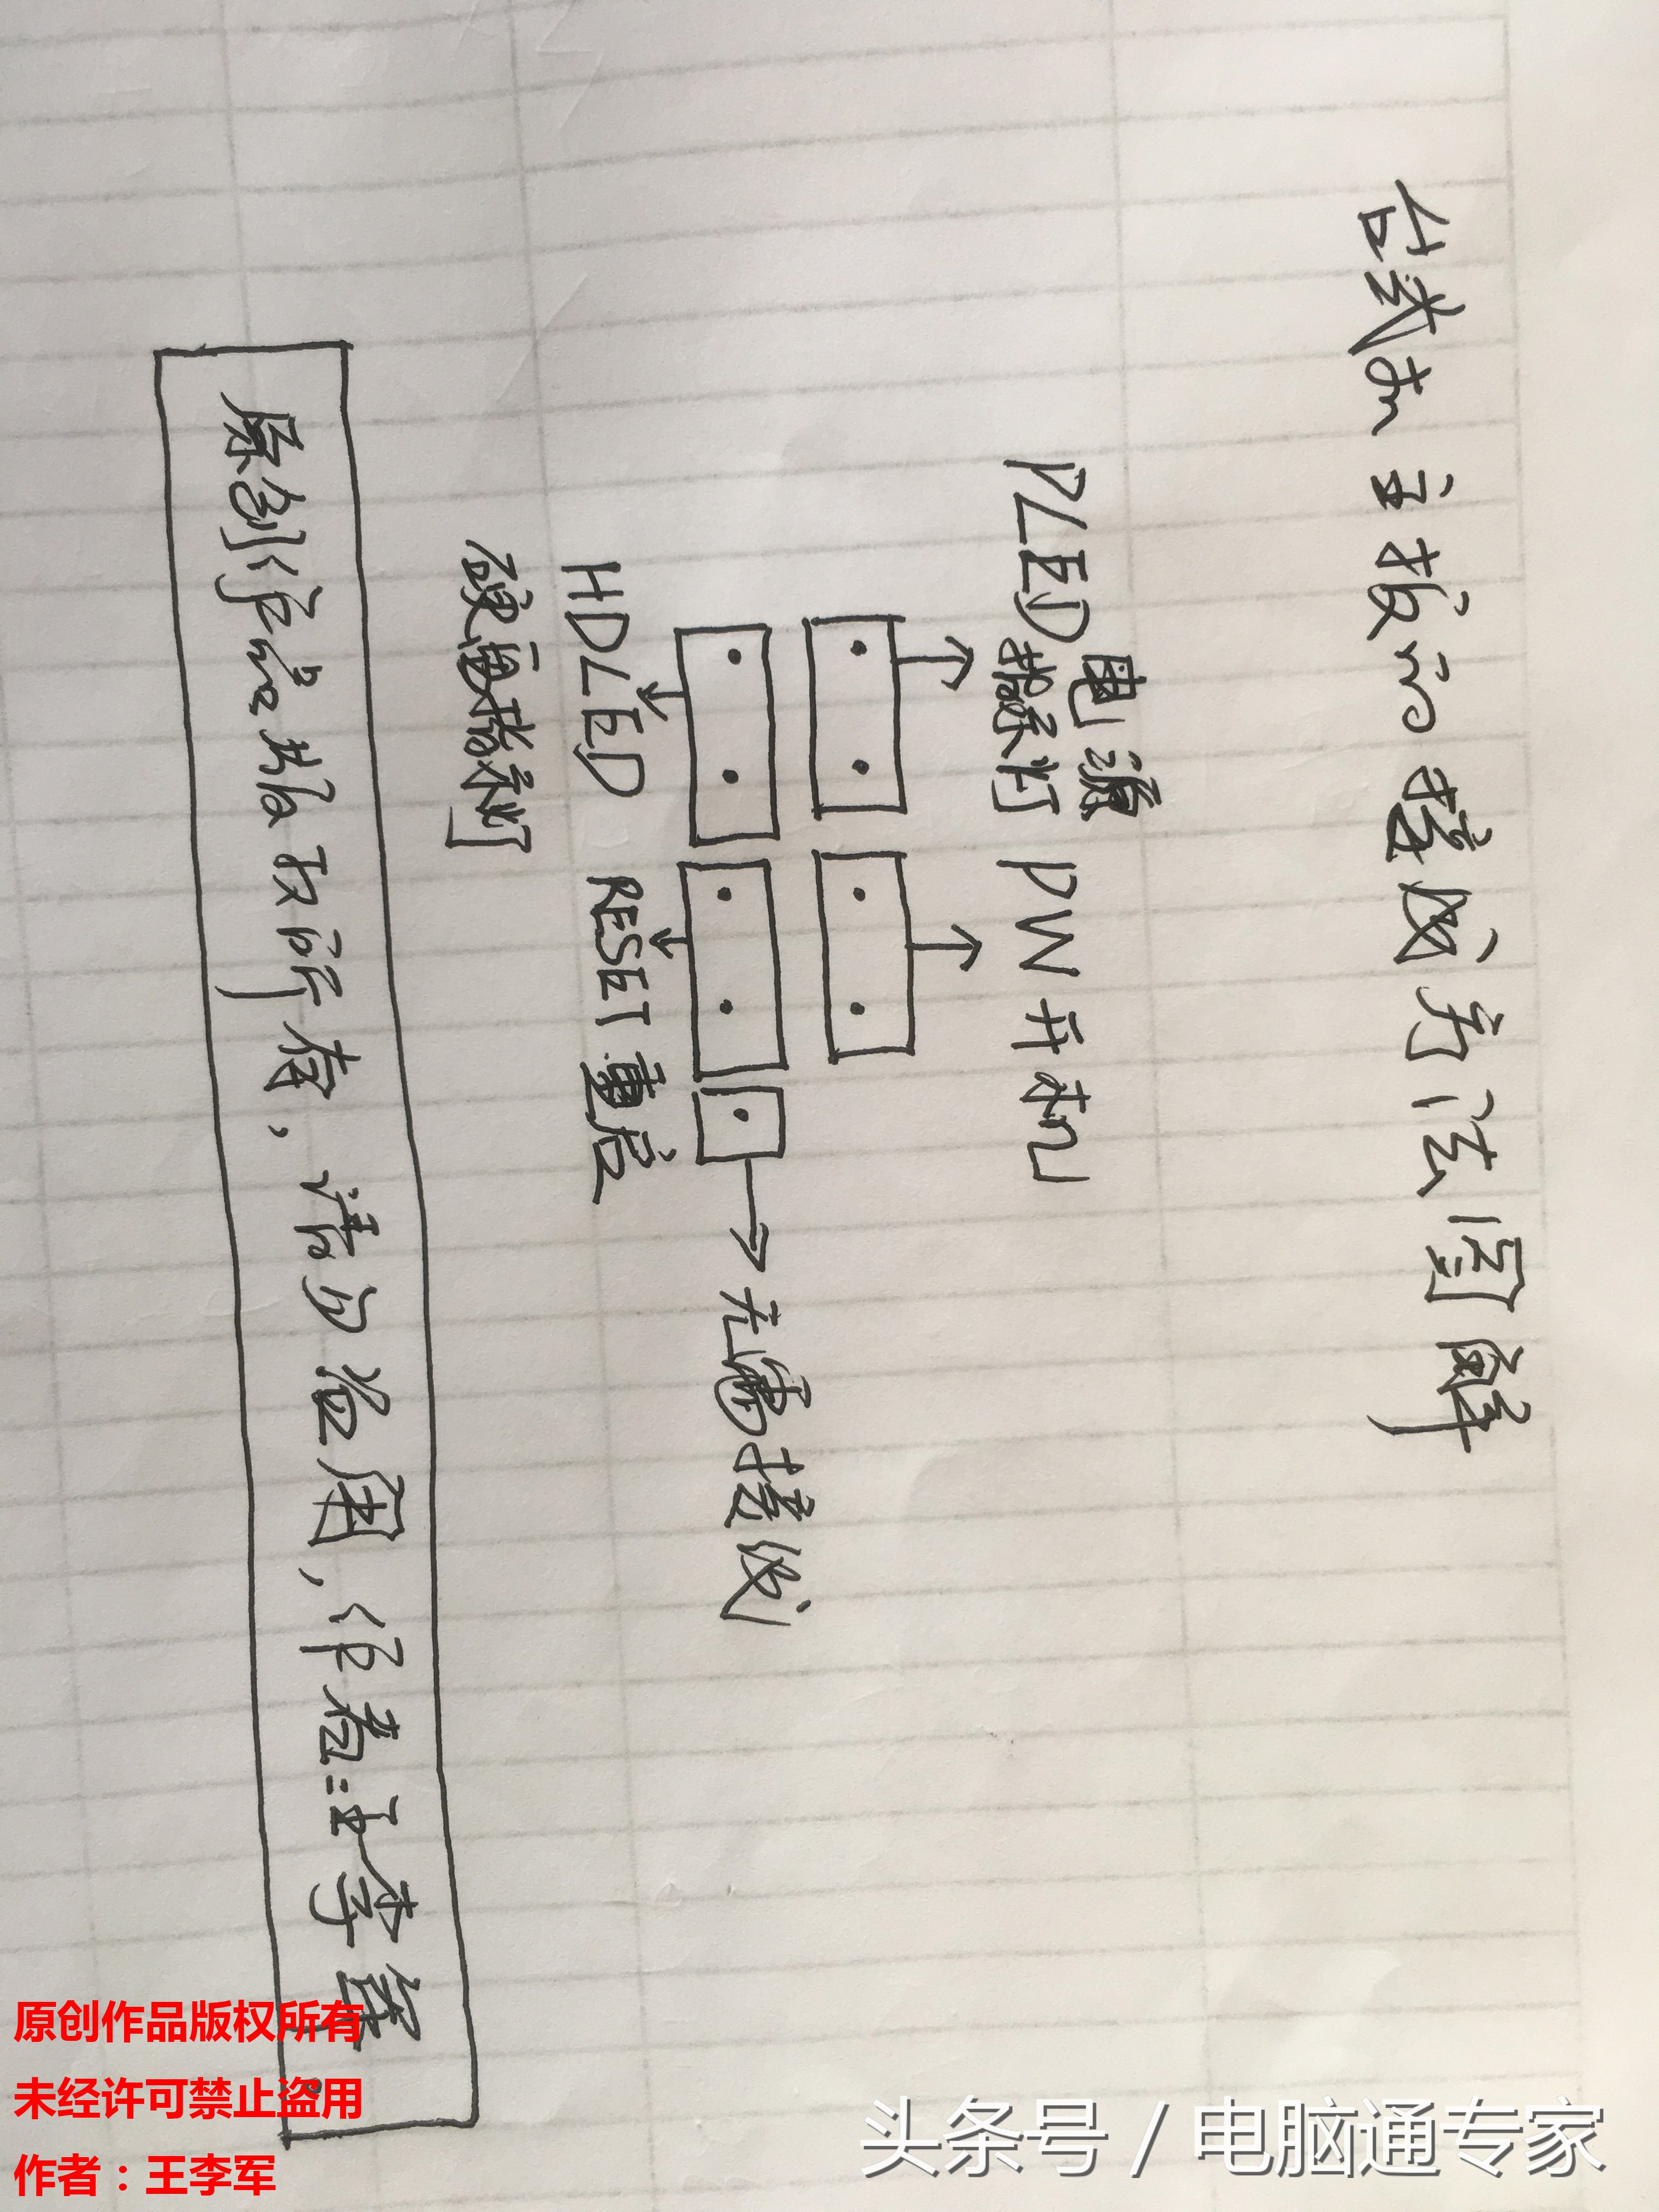 台式机主板的接线方法图解
电源
PLED指示灯
PW 开机
无需接线
HDLED
硬盘指示灯
RESET 重启
原创作品版权所有，请勿盗用，作者：王李军
原创作品版权所有
未经许可禁止盗用
作者：王李军
头条号 / 电脑通专家